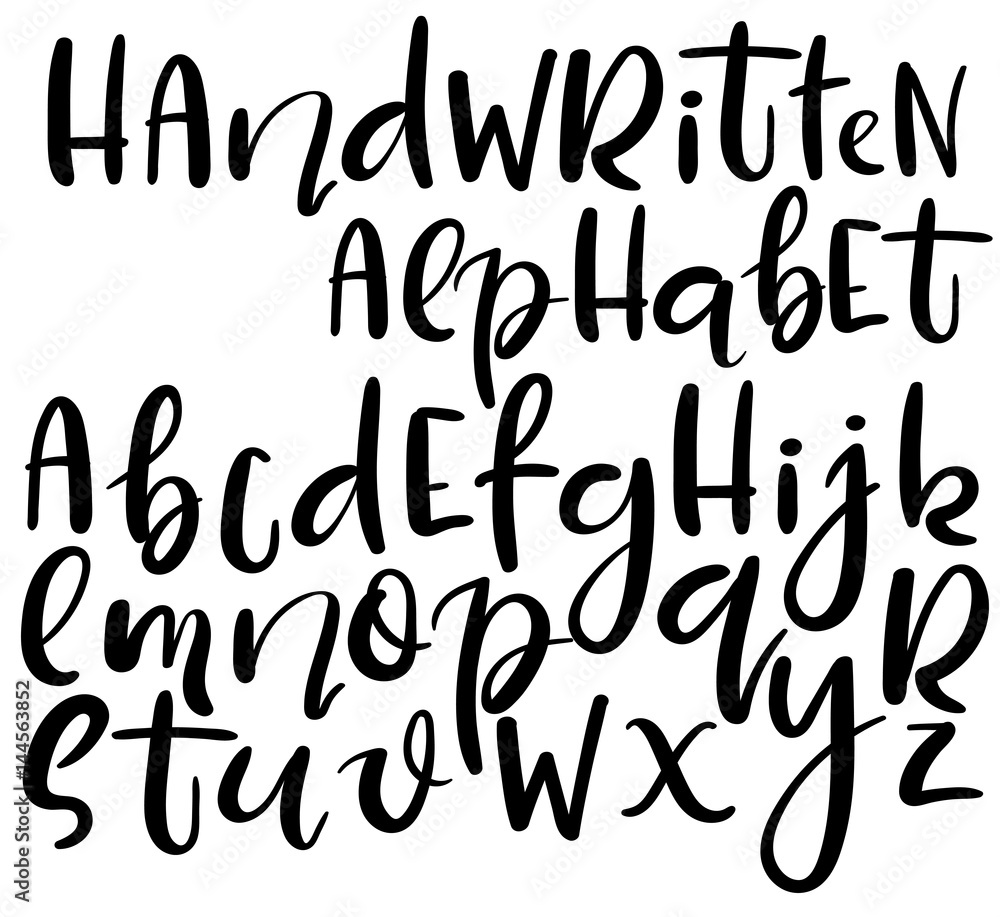 HAndWRitteN
AlpHabEt
AbcdEfgHijk
lmnopqR
stuvwxyz
Adobe Stock | #144563852